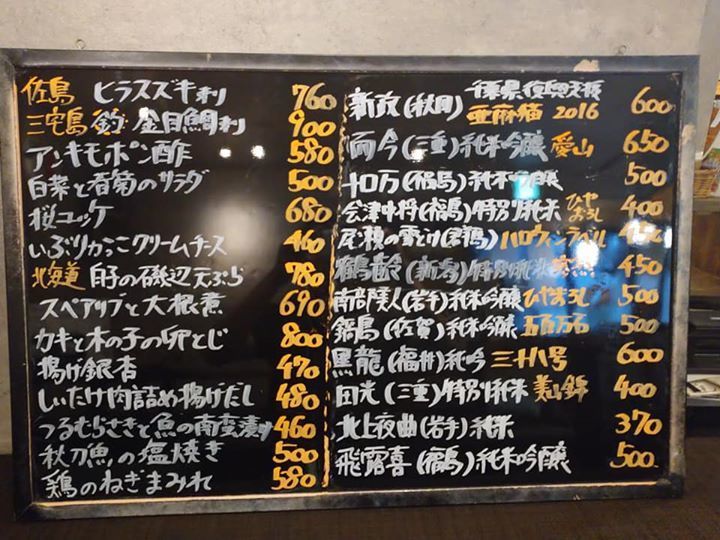 佐島 ヒラスズキ刺 760
三宅島 釣 金目鯛刺 900
アンキモポン酢 580
白菜と春菊のサラダ 500
桜ユッケ 680
いぶりがっこクリームチーズ 460
北海道 白子の磯辺天ぷら 780
スペアリブと大根煮 690
カキと木の子の卵とじ 800
揚げ銀杏 470
しいたけ肉詰め揚げだし 480
つるむらさきと魚の南蛮漬け 460
秋刀魚の塩焼き 500
鶏のねぎまみれ 580
千葉県復興支援
新政(秋田) 亜麻猫 2016 600
而今(三重)純米吟醸 愛山 650
十口万(福島)純米吟醸 500
会津中将(福島)特別純米 ひやおろし 400
尾瀬の雪どけ(群馬)ハロウィンラベル 450
鶴齢(新潟)特別純米 450
南部美人(岩手)純米吟醸 ひやおろし 500
鍋島(佐賀)純米吟醸 五百万石 500
黒龍(福井)純吟 三十八号 600
田光(三重)特別純米 美山錦 400
北上夜曲(岩手)純米 370
飛露喜(福島)純米吟醸 500